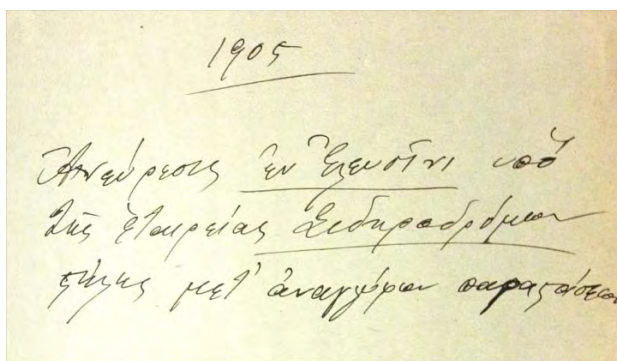 1905
Ἀνεύρεσις ἐν Ἐλευσῖνι ὑπὸ
τῆς ἑταιρείας Σιδηροδρόμων
στήλης μετ' ἀναγλύφων παραστάσεων